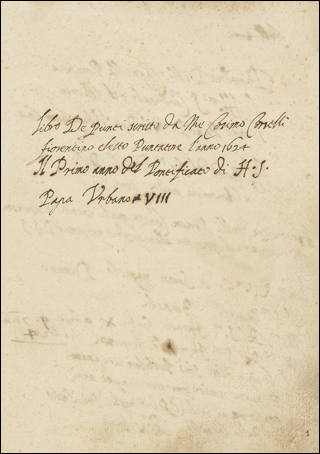 Libro De punti scritto da Me Cosimo Corselli
fiorentino eletto Puntatore l'anno 1624
Il Primo anno del Pontificato di N. S.
Papa Vrbano VIII
1